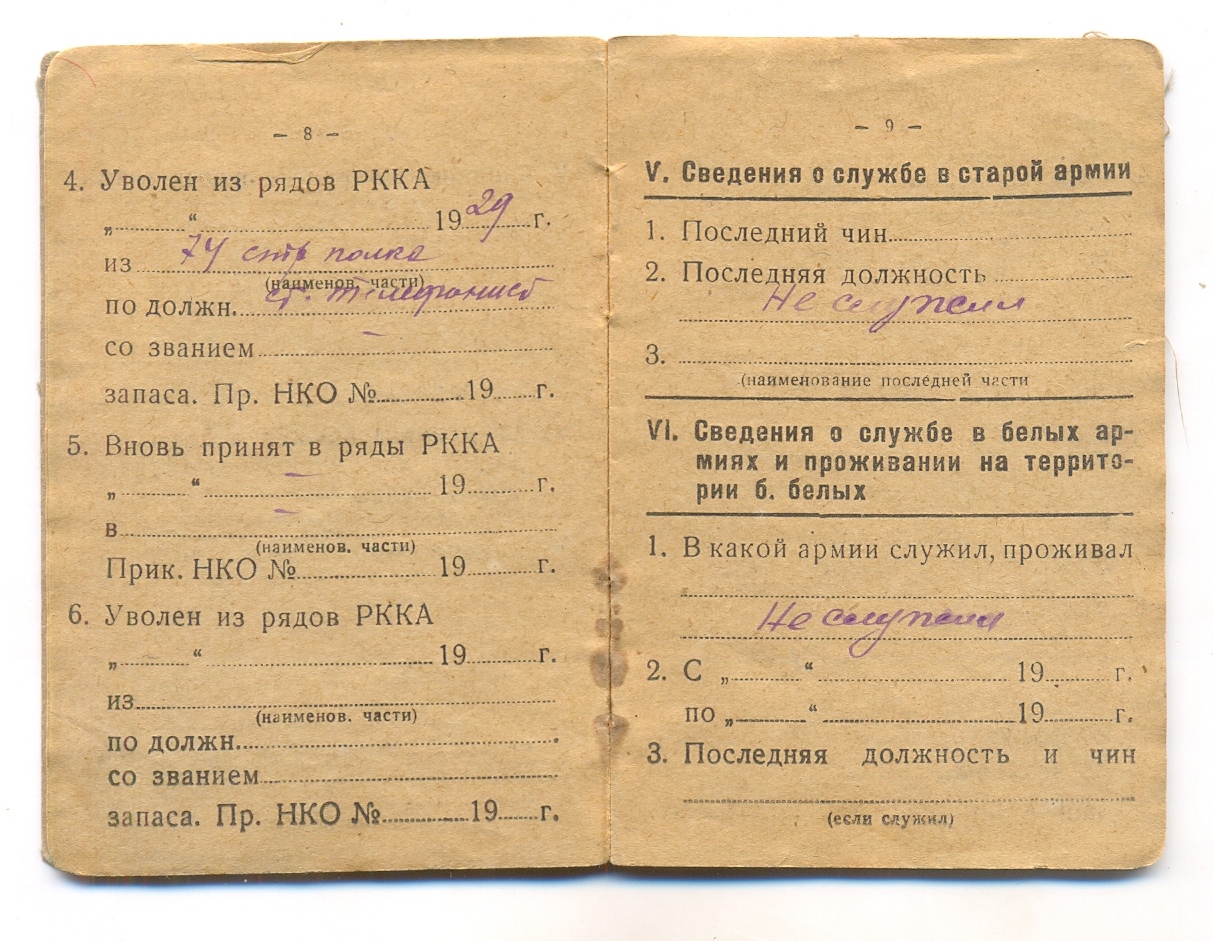 – 8 –
4. Уволен из рядов РККА
„ “ 1929 г.
из 74 стр полка
(наименов. части)
по должн. ст. телефонист
со званием –
запаса. Пр. НКО № 19 г.
5. Вновь принят в ряды РККА
„ “ – 19 г.
в –
(наименов. части)
Прик. НКО № 19 г.
6. Уволен из рядов РККА
„ “ 19 г.
из
(наименов. части)
по должн.
со званием
запаса. Пр. НКО № 19 г.
– 9 –
V. Сведения о службе в старой армии
1. Последний чин
2. Последняя должность
Не служил
3.
(наименование последней части
VI. Сведения о службе в белых ар-
миях и проживании на террито-
рии б. белых
1. В какой армии служил, проживал
Не служил
2. С „ “ 19 г.
по „ “ 19 г.
3. Последняя должность и чин
(если служил)